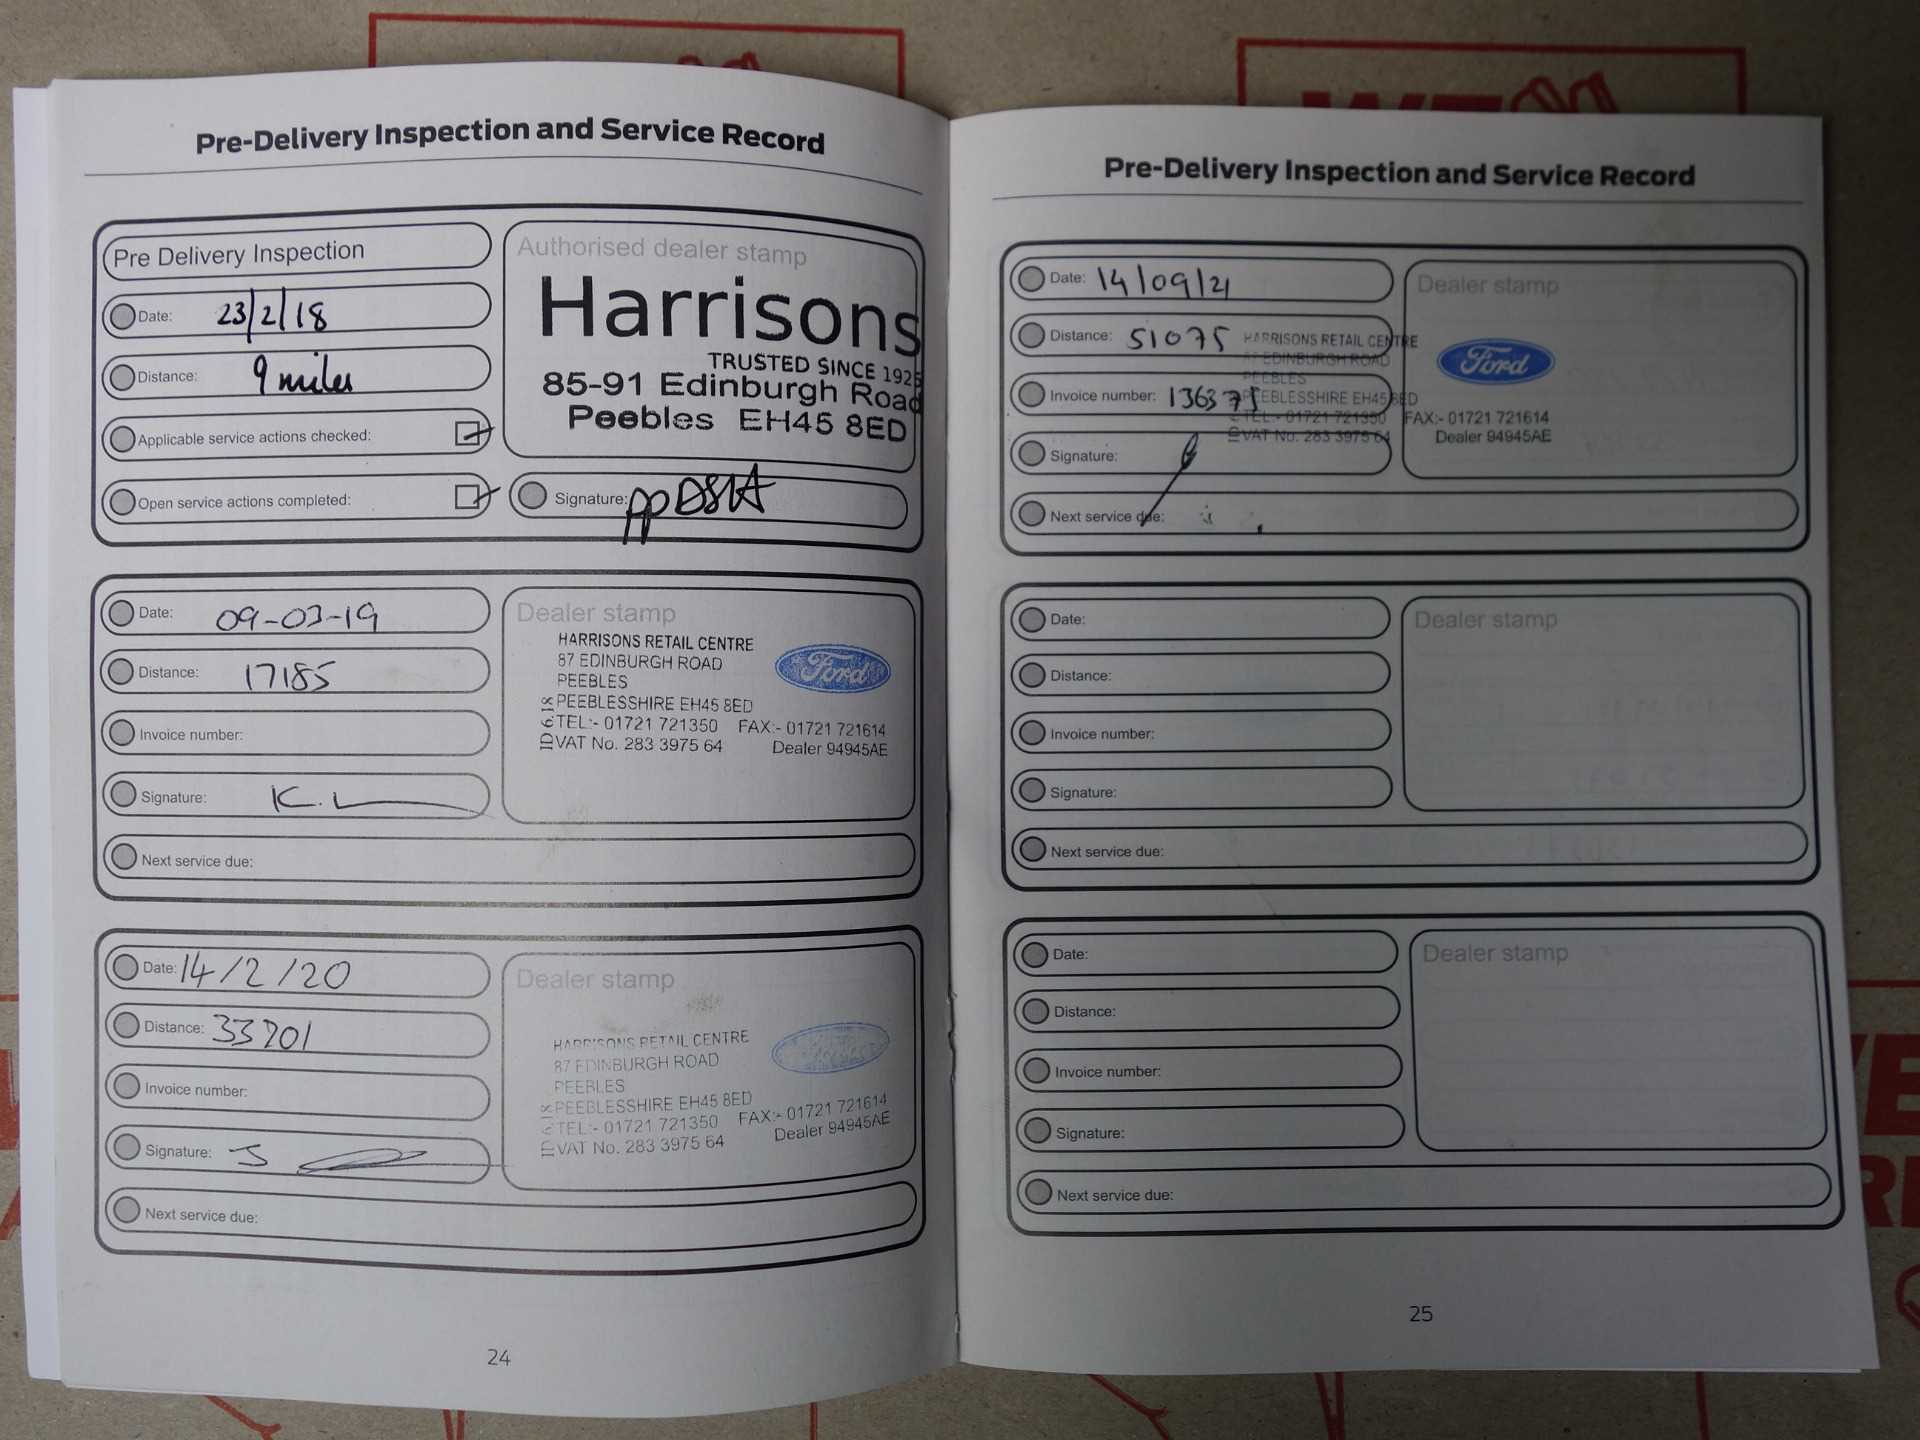 Pre-Delivery Inspection and Service Record
Pre Delivery Inspection
Date: 23/2/18
Distance: 9 miles
Applicable service actions checked:
Open service actions completed:
Authorised dealer stamp
Harrisons
TRUSTED SINCE 1925
85-91 Edinburgh Road
Peebles EH45 8ED
Signature:
Date: 09-03-19
Distance: 17185
Invoice number:
Signature: K.
Next service due:
Dealer stamp
HARRISONS RETAIL CENTRE
87 EDINBURGH ROAD
PEEBLES
PEEBLESSHIRE EH45 8ED
TEL:- 01721 721350 FAX:- 01721 721614
VAT No. 283 3975 64 Dealer 94945AE
Ford
Date: 14/2/20
Distance:
Invoice number:
Signature:
Next service due:
Dealer stamp
HARRISONS RETAIL CENTRE
87 EDINBURGH ROAD
PEEBLES
PEEBLESSHIRE EH45 8ED
TEL:- 01721 721350 FAX:- 01721 721614
VAT No. 283 3975 64 Dealer 94945AE
24
Pre-Delivery Inspection and Service Record
Date: 14/09/21
Distance: 51075
Invoice number: 136375
Signature:
Next service due:
Dealer stamp
HARRISONS RETAIL CENTRE
87 EDINBURGH ROAD
PEEBLES
PEEBLESSHIRE EH45 8ED
TEL:- 01721 721350 FAX:- 01721 721614
VAT No. 283 3975 64 Dealer 94945AE
Ford
Date:
Distance:
Invoice number:
Signature:
Next service due:
Dealer stamp
Date:
Distance:
Invoice number:
Signature:
Next service due:
Dealer stamp
25